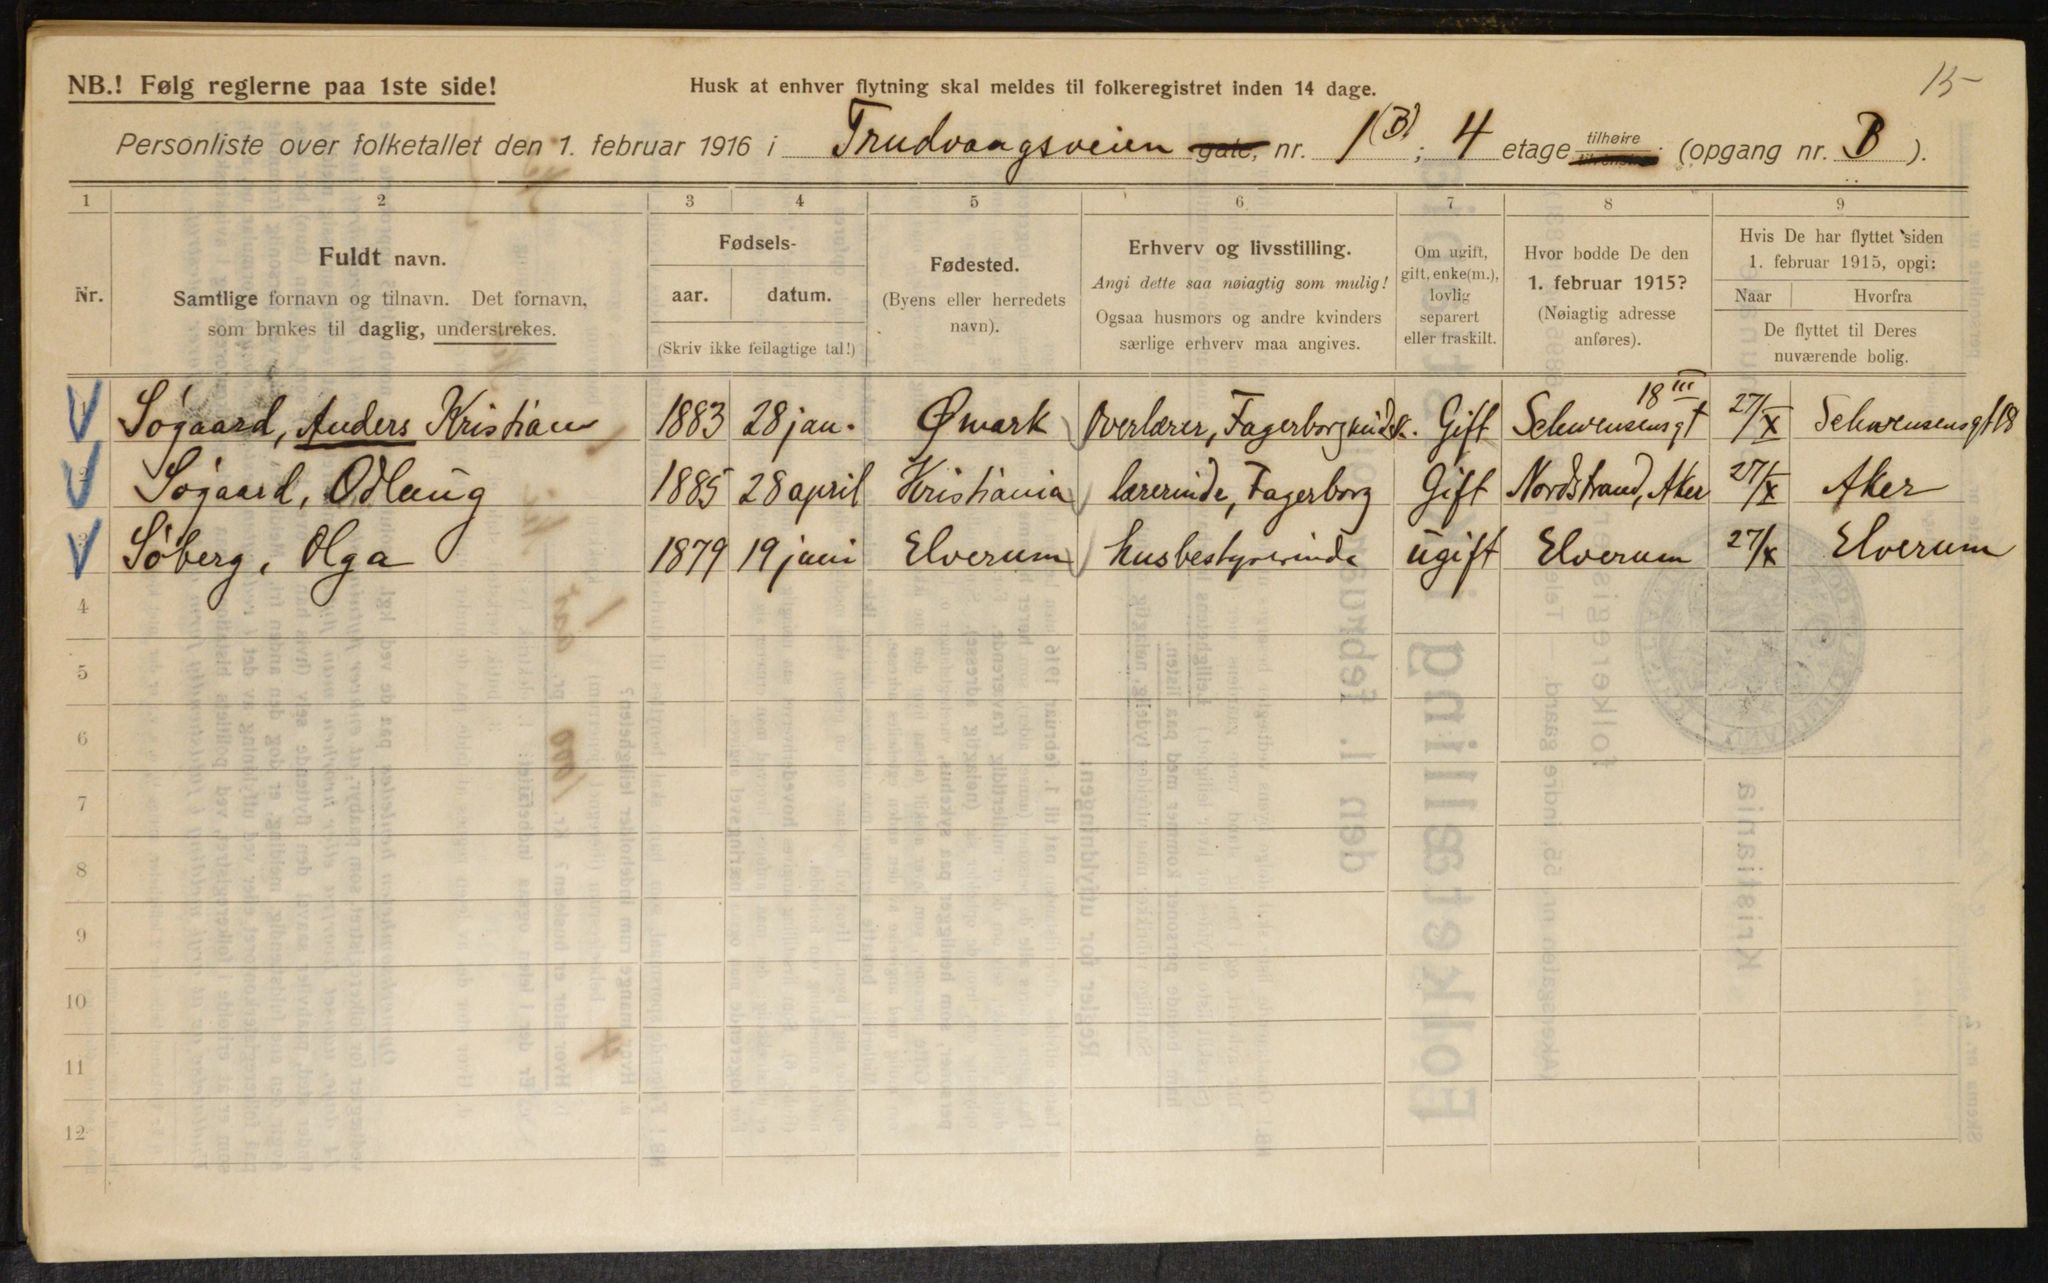 15
NB.! Følg reglerne paa 1ste side!
Husk at enhver flytning skal meldes til folkeregistret inden 14 dage.
Personliste over folketallet den 1. februar 1916 i Trudvangsveien gate, nr. 1(B); 4 etage tilhøire (opgang nr. B).
1 2 3 4 5 6 7 8 9
Nr.
Fuldt navn.
Samtlige fornavn og tilnavn. Det fornavn,
som brukes til daglig, understrekes.
Fødsels-
aar. datum.
(Skriv ikke feilagtige tal!)
Fødested.
(Byens eller herredets
navn).
Erhverv og livsstilling.
Angi dette saa nøiagtig som mulig!
Ogsaa husmors og andre kvinders
særlige erhverv maa angives.
Om ugift,
gift, enke(m.),
lovlig
separert
eller fraskilt.
Hvor bodde De den
1. februar 1915?
(Nøiagtig adresse
anføres).
Hvis De har flyttet siden
1. februar 1915, opgi:
Naar Hvorfra
De flyttet til Deres
nuværende bolig.
Søgaard, Anders Kristian 1883 28 jan. Ømark Overlærer, Fagerborg Gift Schwensensgt 18 III 27/X Schwensensgt 18
Søgaard, Odlaug 1885 28 april Kristiania lærerinde, Fagerborg Gift Nordstrand, Aker 27/X Aker
Søberg, Olga 1879 19 juni Elverum husbestyrerinde ugift Elverum 27/X Elverum
4
5
6
7
8
9
10
11
12